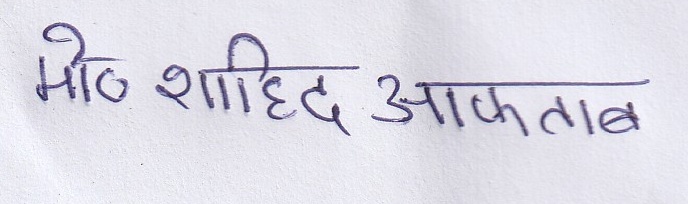 मो० शाहिद आफताब